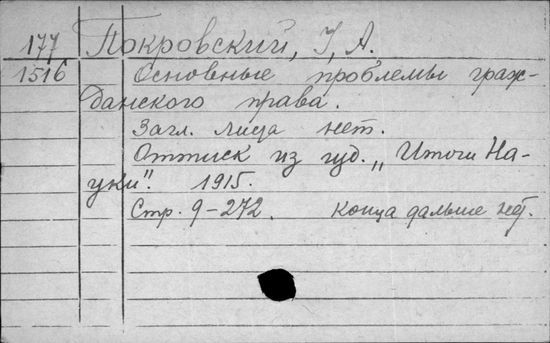 177 Покровский, I, А.
1516 Основные проблемы граж-
данского права.
Загл. лица нет.
Оттиск из „Итоги На-
уки". 1915.
Стр. 9-272. конца дальше нет.